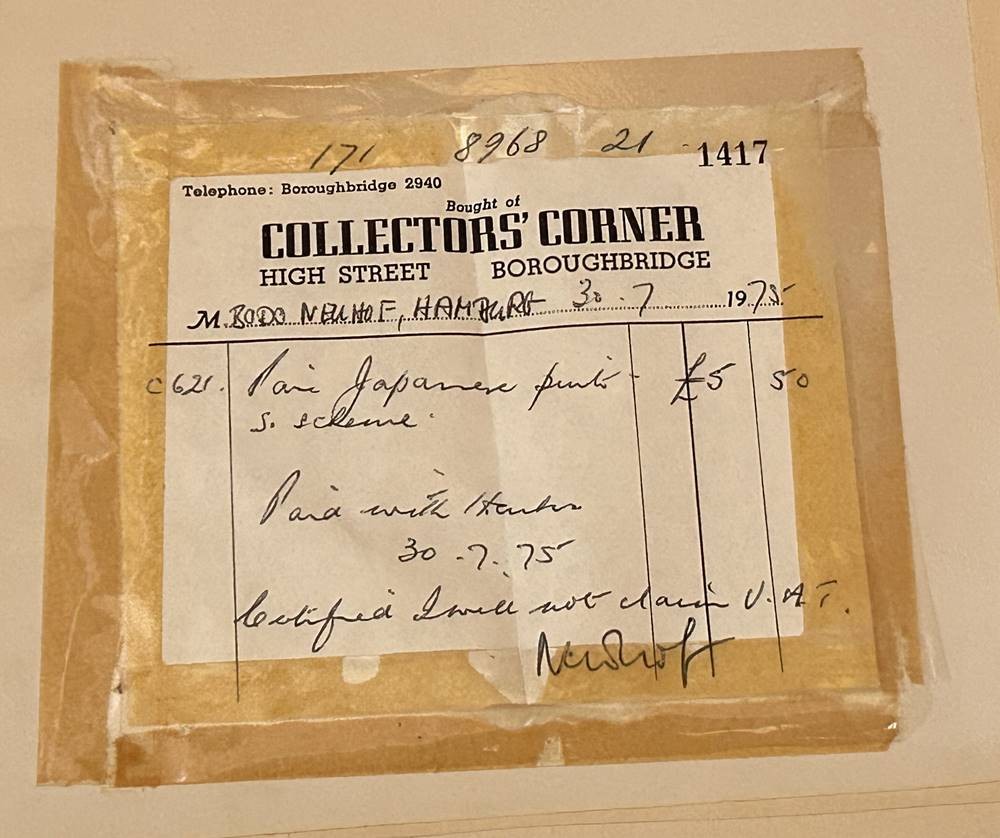 171 8968 21 1417
Telephone: Boroughbridge 2940
Bought of
COLLECTORS' CORNER
HIGH STREET BOROUGHBRIDGE
M. BODO NEUHOF, HAMBURG 30.7 1975
C621. Pair Japanese prints - £5 50
S. scheme.
Paid with
30.7.75
Certified I will not claim V.A.T.
Neuhof